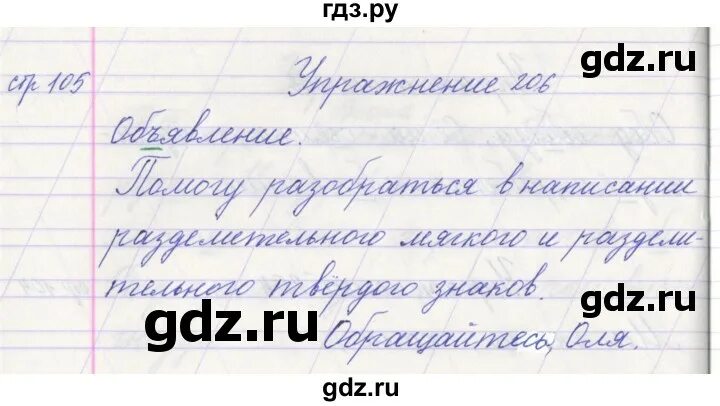 гдз.ру
стр 105 Упражнение 206
gdz.ru
Объявление.
Помогу разобраться в написании
разделительного мягкого и раздели-
тельного твёрдого знаков.
gdz.ru
gdz.ru
Обращайтесь, Оля.
gdz.ru